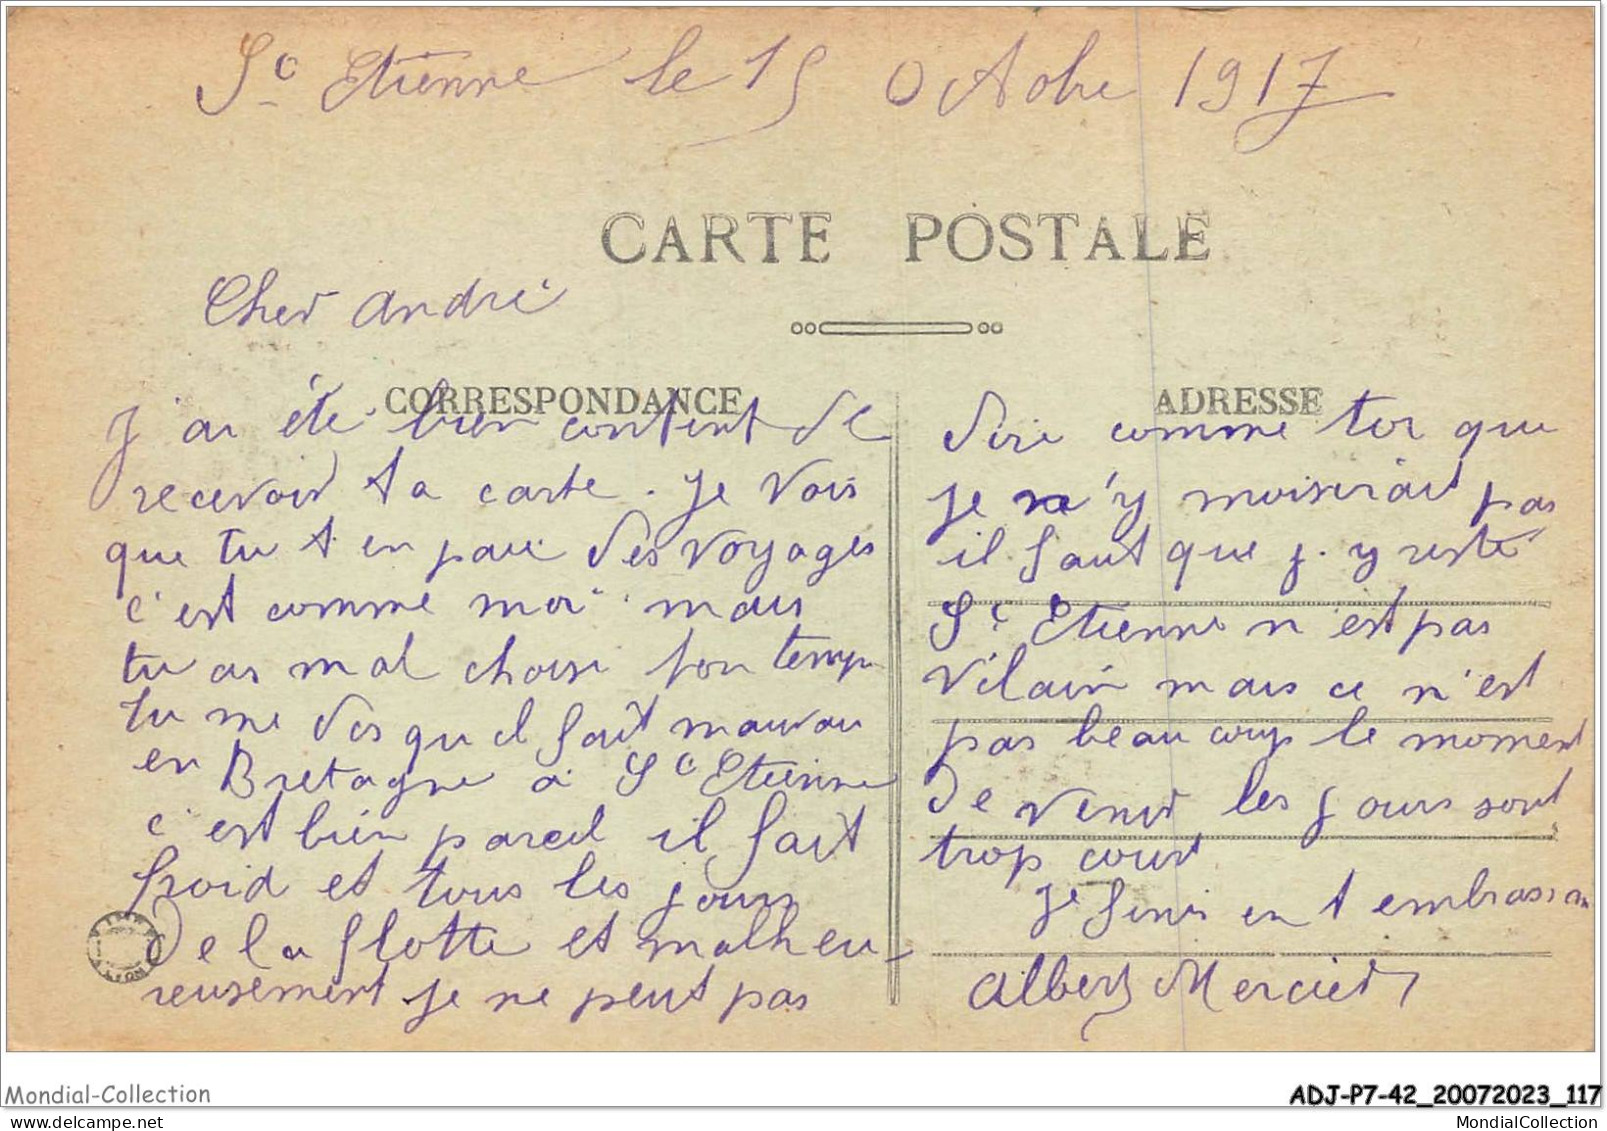 St Etienne le 15 Octobre 1917
CARTE POSTALE
Cher andré
CORRESPONDANCE
J'ai été bien content de
recevoir ta carte. Je vois
que tu t en paie des voyages
c'est comme moi mais
tu as mal choisi ton temps
tu me dis qu il fait mauvais
en Bretagne a St Etienne
c'est bien pareil il fait
froid et tous les jours
de la flotte et malheu-
reusement je ne peut pas
ADRESSE
dire comme toi que
je n'y moiserait pas
il faut que j. y reste
St Etienne n'est pas
vilain mais ce n'est
pas beaucoup le moment
de venir les jours sont
trop court
Je finis en t embrassan
Albert Mercier
Mondial-Collection
ADJ-P7-42_20072023_117
mondial-collection.com
MondialCollection